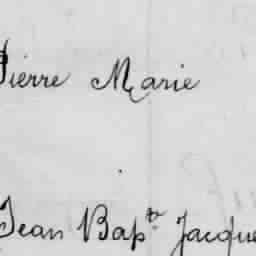 Pierre Marie
Jean Bapte Jacque